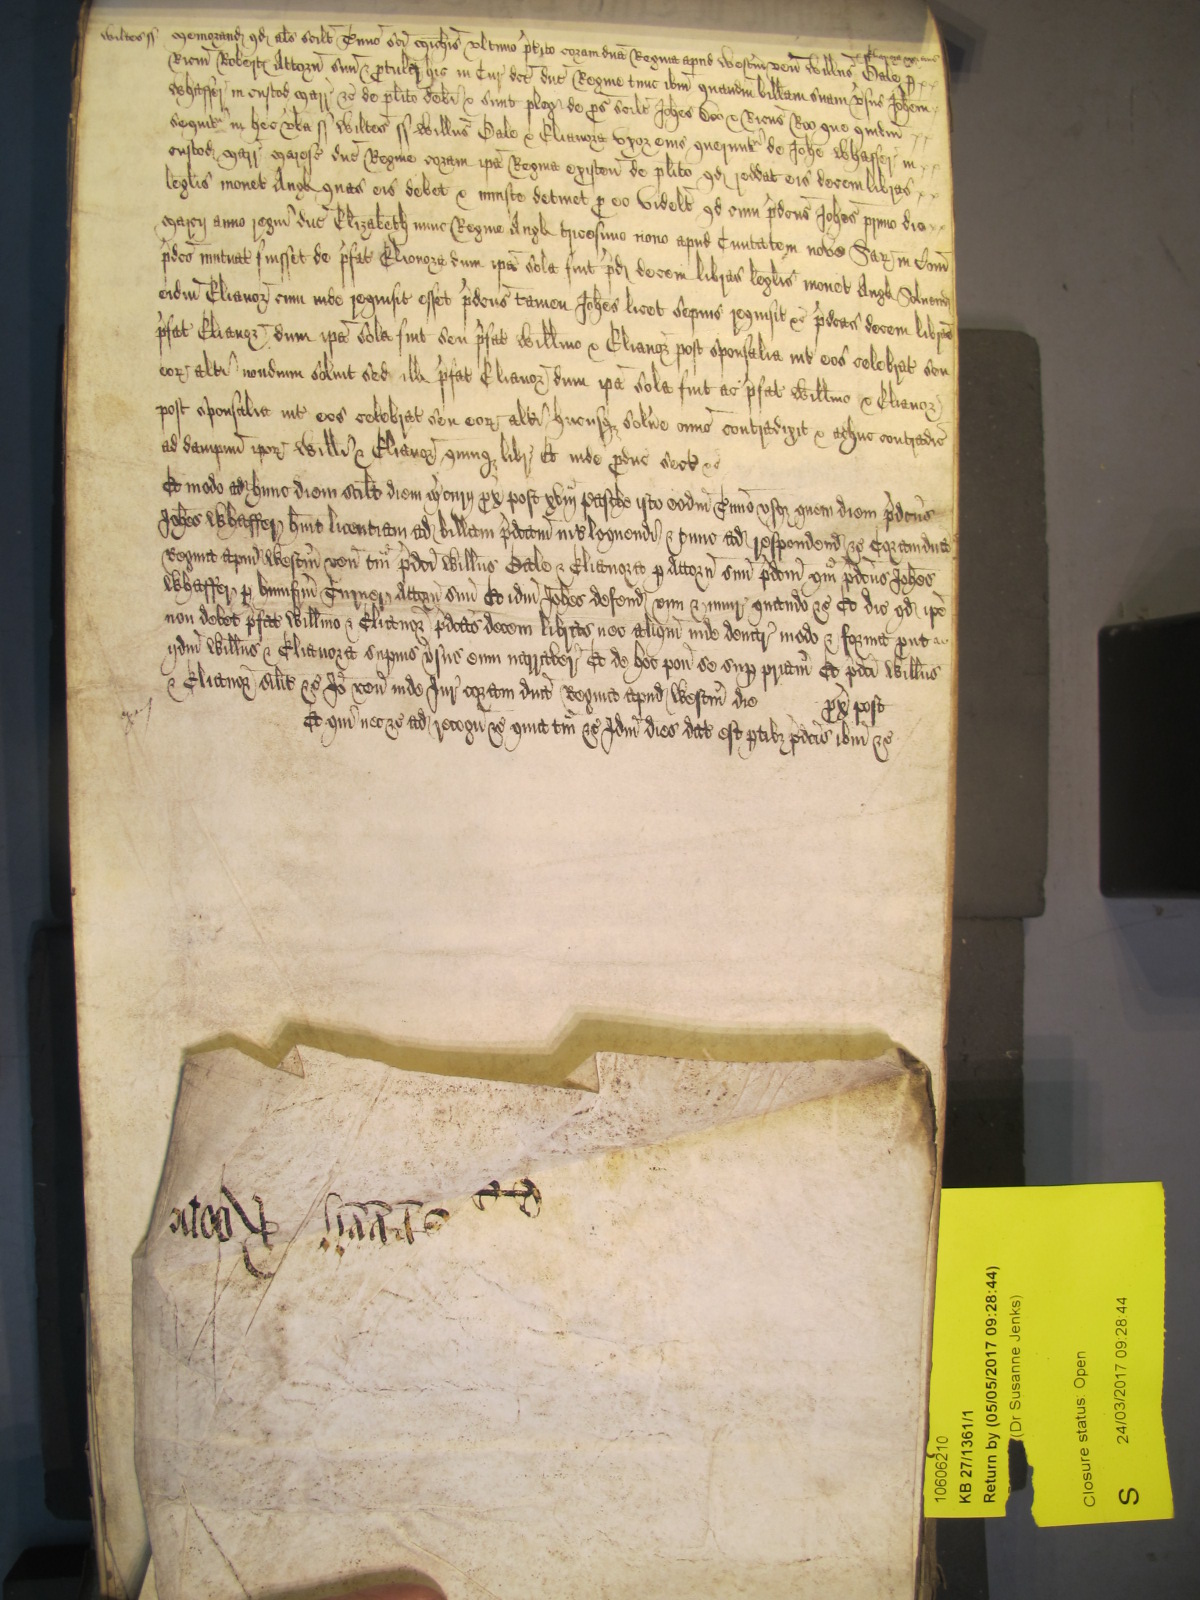 Wiltes ss Memorand qd als scilt Tmio sci Michis ultimo pito coram dna Regina apud Westm ven Willus Dale p
Ricm Robert Attorn suu & ptulit hic in Cur dce dne Regine tunc ibm quandm billam suam vsus Johem
Whaffer in custod Marr &c de plito debi & sunt pleg de ps scilt Johes Doo & Ricus Roo que quidm
sequit in hec vba ss Wiltes ss Willus Dale & Elianora uxor eius querunt de Johe Whaffer in
custod Marr Maresc dne Regine coram ipa Regina existen de plito qd reddat eis decem libras
legtis monet Angl quas eis debet & iniuste detinet p eo videlt qd cum pdcus Johes primo die
Marcii anno regni dne Elizabeth nunc Regine Angl tricesimo nono apud Civitatem nove Sar in Com
pdco mutuat fuisset de pfat Elionora dum ipa sola fuit pd decem libras legtis monet Angl Solvend
eidm Elianor cum inde requisit esset pdcus tamen Johes licet sepius requisit &c pdcas decem libras
pfat Elianor dum ipa sola fuit seu pfat Willmo & Elianor post sponsalia int eos celebrat seu
eor alti nondum solvit sed ill pfat Elianor dum ipa sola fuit ac pfat Willmo & Elianor
post sponsalia int eos celebrat seu eor alti hucusq solve omo contradixit & adhuc contradic
ad dampnu ipor Willi & Elianor quinq libr Et inde pduc sect &c
Et modo ad hunc diem scilt diem px post xviij Pasche isto eodm Tmio usq quem diem pdcus
Johes Whaffer huit licentiam ad billam pdcam int loquend & tunc ad respondend &c Coram dna
Regina apud Westm ven tm pdci Willus Dale & Elianora p Attorn suu pdcm qm pdcus Johes
Whaffer p humfrm Turner Attorn suu Et idm Johes defend vim & iniur quando &c Et dic qd ipe
non debet pfat Willmo & Elianor pdcas decem libras nec aliqm inde denar modo & forma put
ijdm Willus & Elianora supius vsus eum narraver Et de hoc pon se sup priam Et pdci Willus
& Elianor silit &c Jo ven inde Jur coram dna Regina apud Westm die px post
Et qui nec &c ad recogn &c quia tm &c Idm dies dat est ptibz pdcis ibm &c
Rotlo
10606210
KB 27/1361/1
Return by (05/05/2017 09:28:44)
(Dr Susanne Jenks)
Closure status: Open
S
24/03/2017 09:28:44